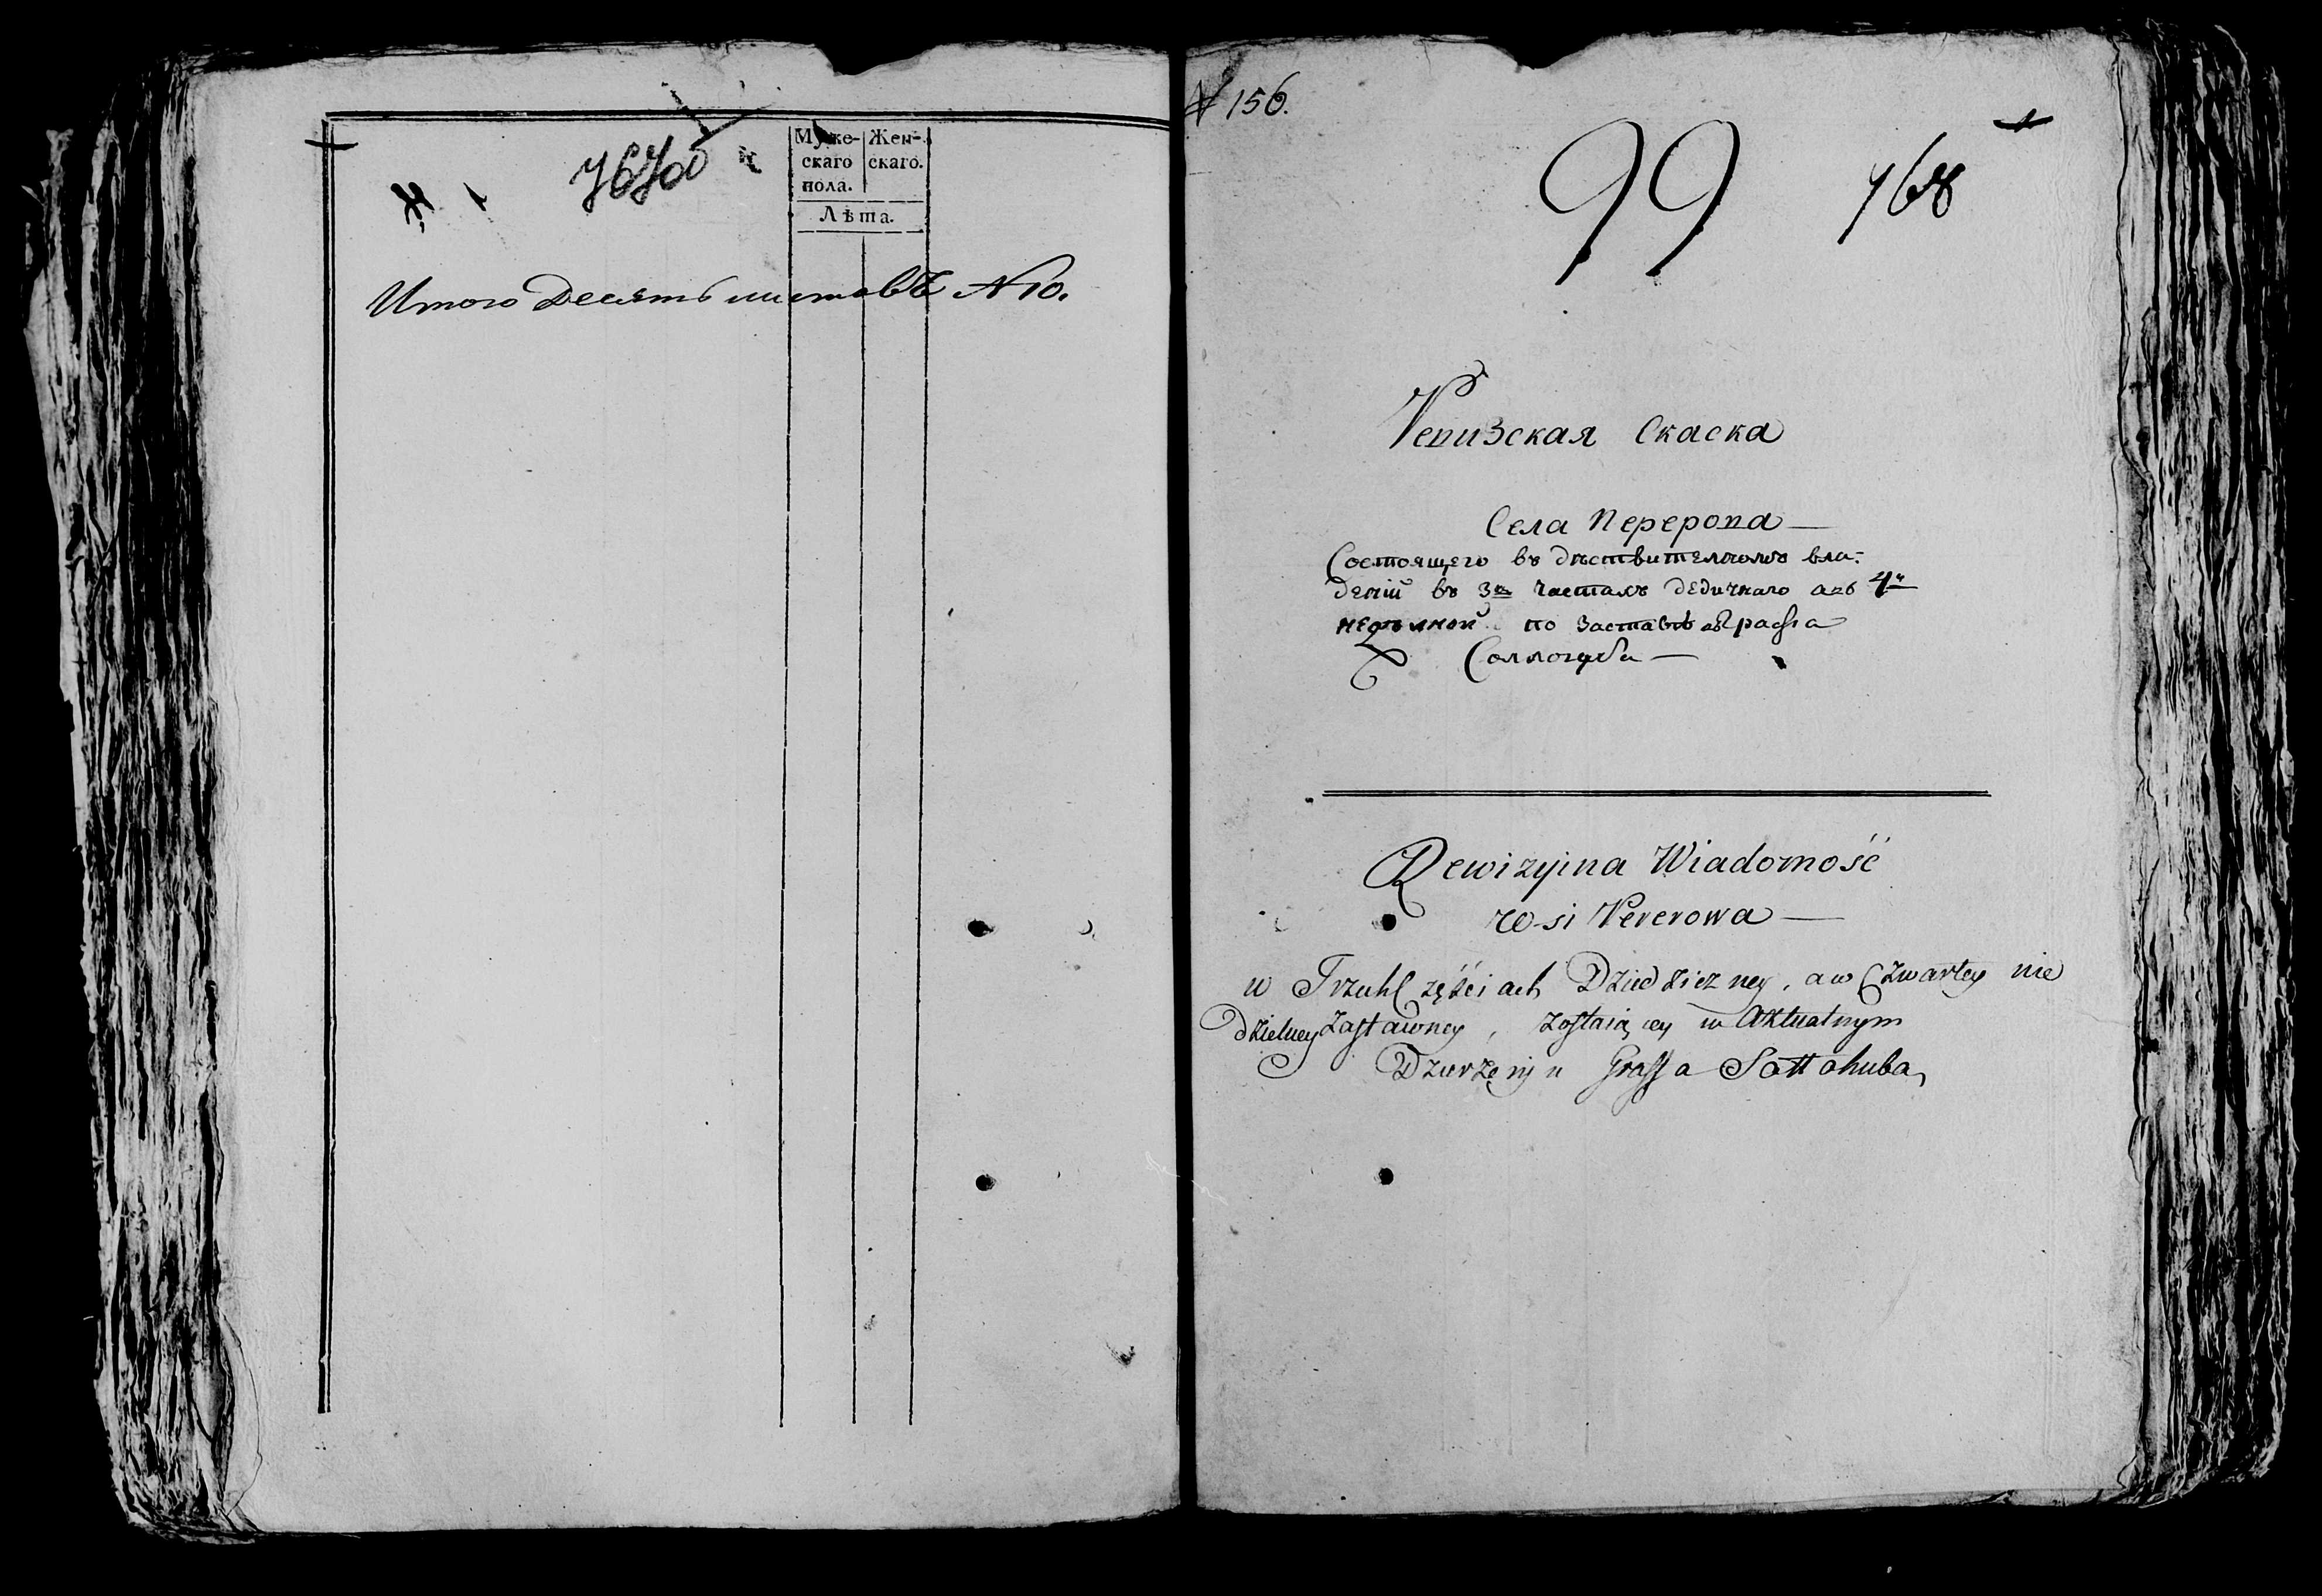 767об
Муже-
скаго
пола.
Жен-
скаго.
Лѣта.
Итого десять листовъ N 10.
№ 156.
99
768
Ревизская Скаска
Села Перерова
Состоящего въ дѣствителномъ вла-
дении въ 3хъ частахъ дедичнаго а въ 4й
по заставѣ Графа
Соллогуба
Rewizyina Wiadomość
wsi Pererowa
w Trzech Częściach Dziedziczney, a w Czwartey nie
dzielney Zastawney, zostaiącey w Aktualnym
Dzierżeniu Graffa Sołłohuba